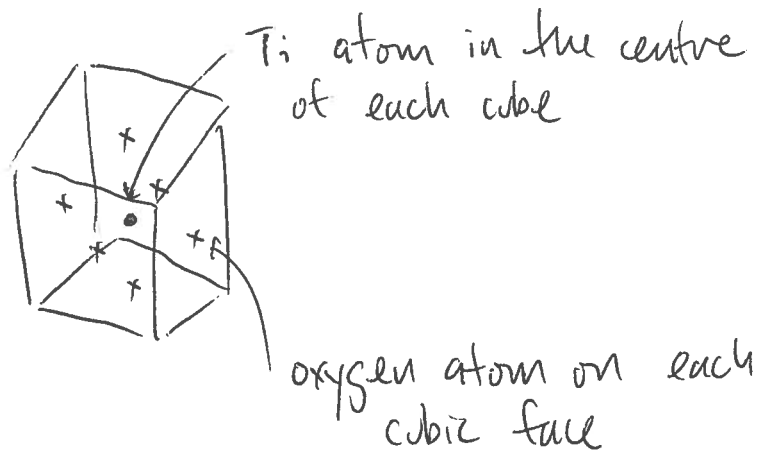 Ti atom in the centre
of each cube
oxygen atom on each
cubic face